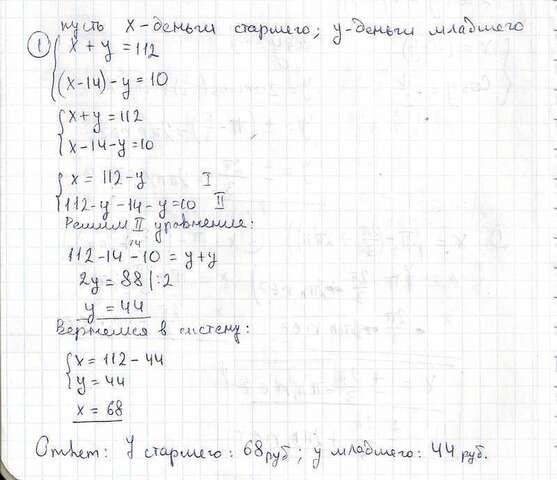 пусть x - деньги старшего; y - деньги младшего
① { x + y = 112
(x-14) - y = 10
{ x + y = 112
x - 14 - y = 10
{ x = 112 - y I
112 - y - 14 - y = 10 II
Решим II уравнение:
112 - 14 - 10 = y + y
2y = 88 | :2
y = 44
Вернемся в систему:
{ x = 112 - 44
y = 44
x = 68
Ответ: У старшего: 68 руб; у младшего: 44 руб.